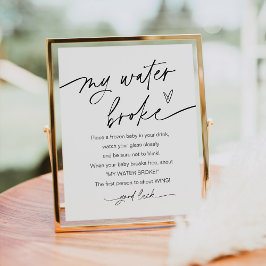 my water
broke
Place a frozen baby in your drink,
watch your glass closely
and be sure not to blink.
When your baby breaks free, shout
"MY WATER BROKE!"
The first person to shout WINS!
good luck